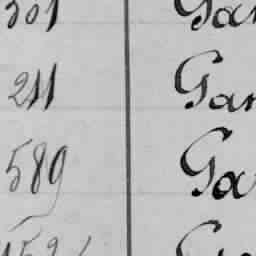 301 Gar
211 Gar
589 Ga